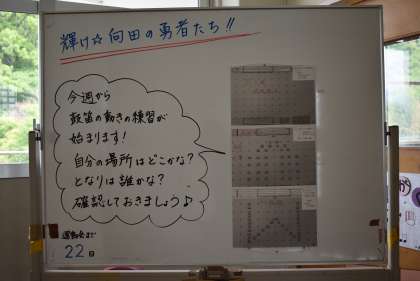 輝け☆向田の勇者たち!!
今週から
鼓笛の動きの練習が
始まります!
自分の場所はどこかな?
となりは誰かな?
確認しておきましょう♪
運動会まで
22日